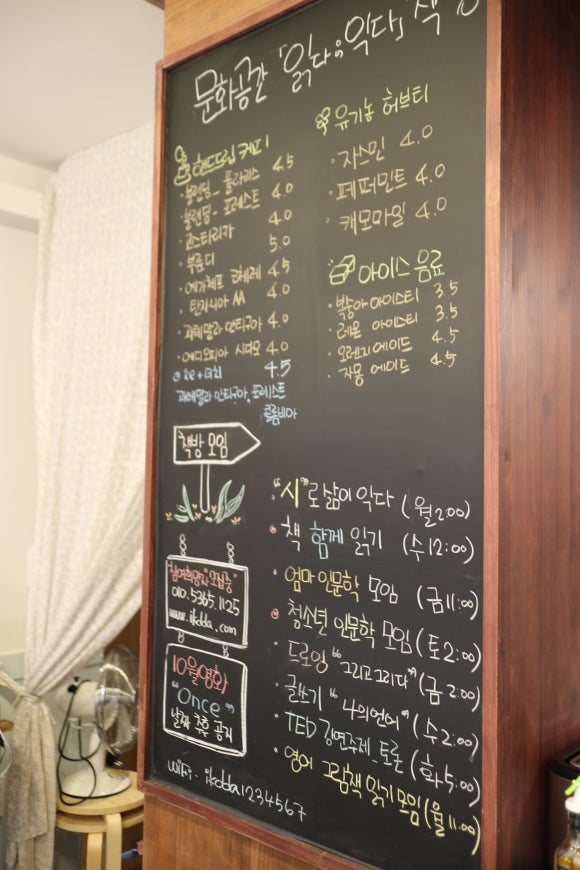 문화공간 「읽다익다」 책방
핸드드립 커피
· 블렌딩 - 플라리스 4.5
· 블렌딩 - 포레스트 4.0
· 코스타리카 4.0
· 부룬디 5.0
· 예가체프 코체레 4.5
· 탄자니아 AA 4.0
· 과테말라 안티구아 4.0
· 에디오피아 시다모 4.0
Ice + 더치 4.5
과테말라 안티구아, 포레스트
콜롬비아
유기농 허브티
· 자스민 4.0
· 페퍼민트 4.0
· 캐모마일 4.0
아이스 음료
· 복숭아 아이스티 3.5
· 레몬 아이스티 3.5
· 오렌지 에이드 4.5
· 자몽 에이드 4.5
책방 모임
"시"로 삶이 익다 (월 2:00)
책 함께 읽기 (수 12:00)
엄마 인문학 모임 (금 11:00)
청소년 인문학 모임 (토 2:00)
드로잉 "그리고 그리다" (금 2:00)
글쓰기 "나의 언어" (수 2:00)
TED 강연주제_토론 (화 5:00)
영어 그림책 읽기 모임 (월 11:00)
참여희망자 "모집중"
010.5365.1125
www.ikdda.com
10월영화
"Once"
날짜 추후 공지
WiFi. ikdda1234567